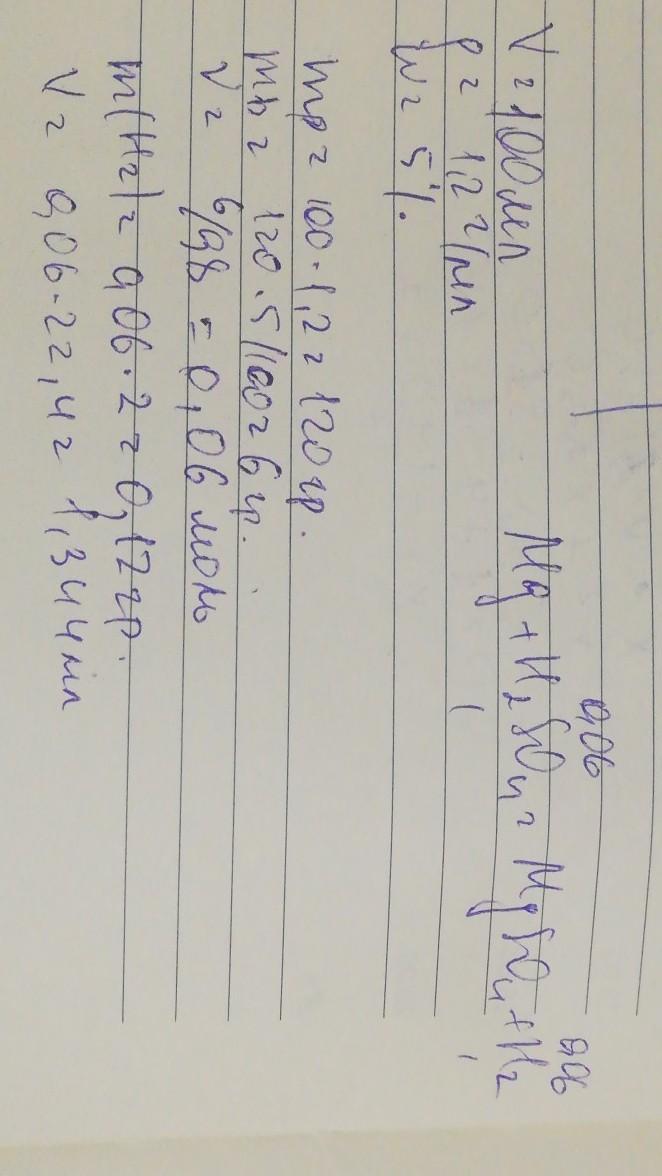 0,06 0,06
V = 100 мл Mg + H₂SO₄ = MgSO₄ + H₂
ρ = 1,2 г/мл 1 1
w = 5%.
mp = 100 · 1,2 = 120 гр.
mв = 120 · 5/100 = 6 гр.
ν = 6/98 = 0,06 моль
m(H₂) = 0,06 · 2 = 0,12 гр.
V = 0,06 · 22,4 = 1,344 мл